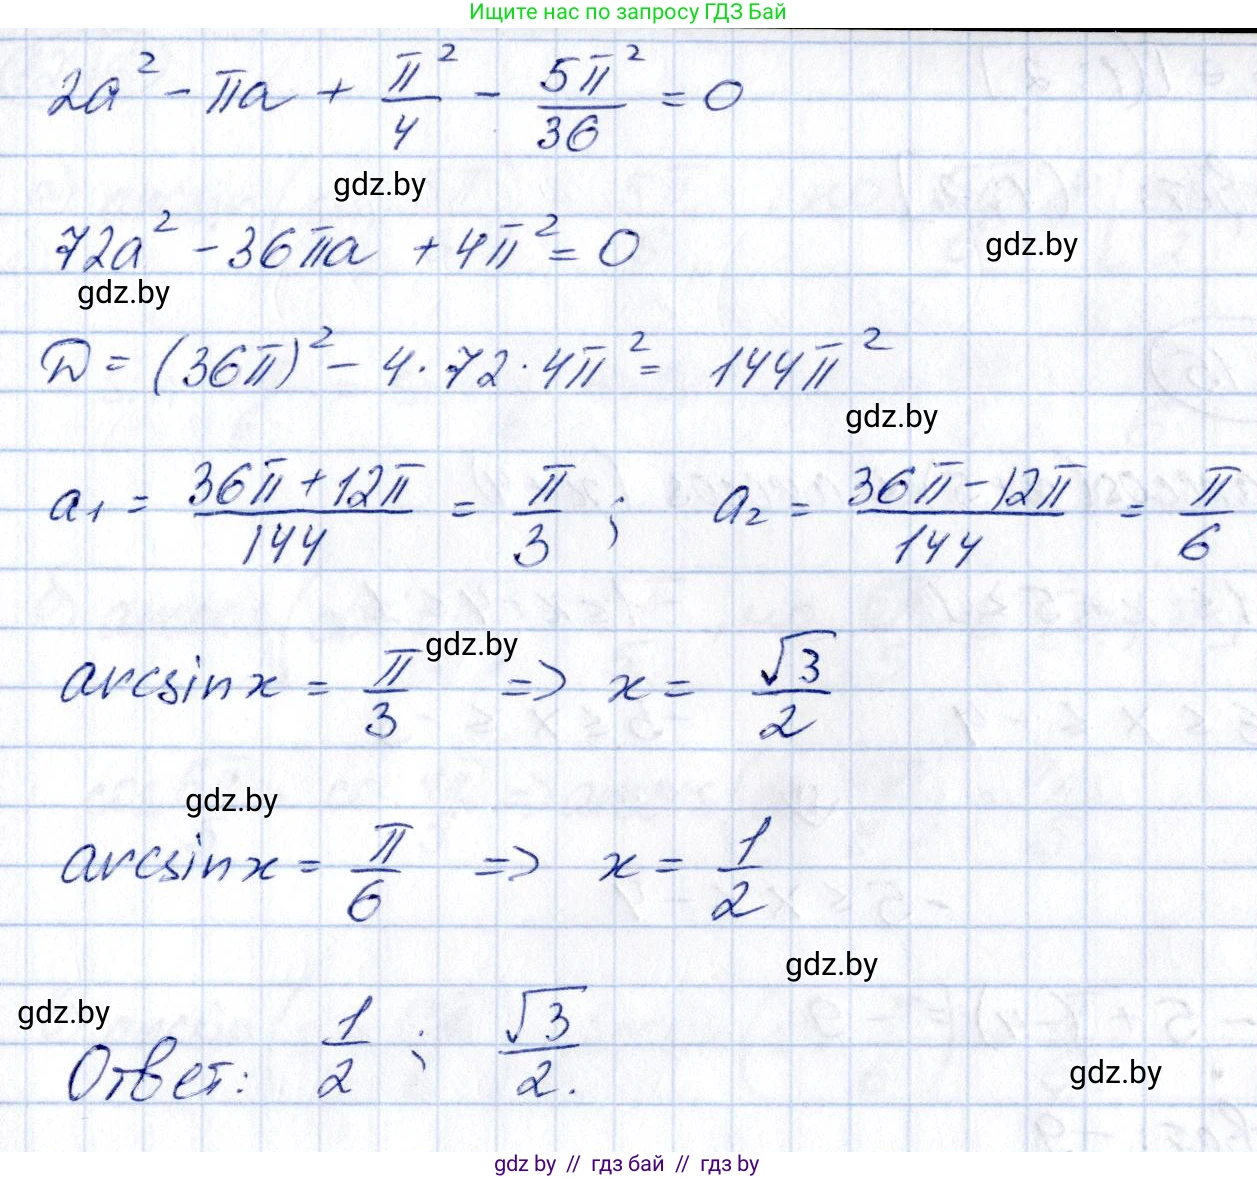 Ищите нас по запросу ГДЗ Бай
2a² - πa + π²/4 - 5π²/36 = 0
gdz.by
72a² - 36πa + 4π² = 0
gdz.by
gdz.by
D = (36π)² - 4·72·4π² = 144π²
gdz.by
a₁ = (36π+12π)/144 = π/3 ; a₂ = (36π-12π)/144 = π/6
gdz.by
arcsinx = π/3 => x = √3/2
gdz.by
arcsinx = π/6 => x = 1/2
gdz.by
gdz.by
Ответ: 1/2 ; √3/2.
gdz.by
gdz by // гдз бай // гдз by